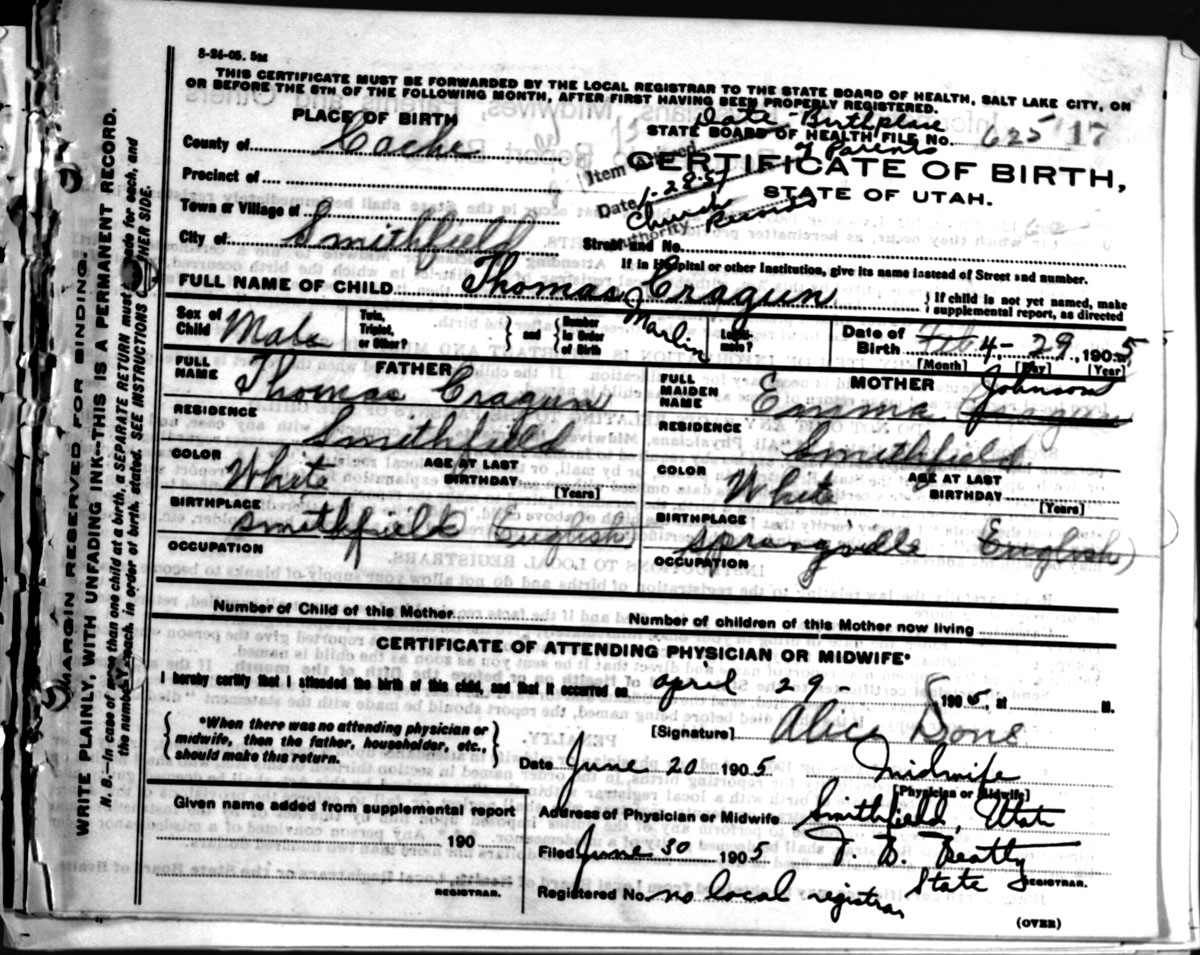 8-24-05. 5M
THIS CERTIFICATE MUST BE FORWARDED BY THE LOCAL REGISTRAR TO THE STATE BOARD OF HEALTH, SALT LAKE CITY, ON
OR BEFORE THE 5TH OF THE FOLLOWING MONTH, AFTER FIRST HAVING BEEN PROPERLY REGISTERED.
PLACE OF BIRTH
Date - Birthplace
STATE BOARD OF HEALTH FILE No. 625 17
County of Cache
Item
of Parents
CERTIFICATE OF BIRTH,
STATE OF UTAH.
Precinct of
Date 1-28-51
Town or Village of
Church Records
Authority
City of Smithfield
Street and No.
If in Hospital or other Institution, give its name instead of Street and number.
FULL NAME OF CHILD Thomas Marlin Cragun
If child is not yet named, make
supplemental report, as directed
Sex of
Child Male
Twin,
Triplet,
or Other?
and
Number
in Order
of Birth
Legiti-
mate?
Date of
Birth Feb 4-29, 1905
[Month] [Day] [Year]
FATHER
FULL
NAME Thomas Cragun
RESIDENCE
Smithfield
COLOR White
AGE AT LAST
BIRTHDAY
[Years]
BIRTHPLACE
Smithfield English
OCCUPATION
MOTHER
FULL
MAIDEN
NAME Emma Johnson
RESIDENCE
Smithfield
COLOR White
AGE AT LAST
BIRTHDAY
[Years]
BIRTHPLACE
Springville English
OCCUPATION
Number of Child of this Mother
Number of children of this Mother now living
CERTIFICATE OF ATTENDING PHYSICIAN OR MIDWIFE*
I hereby certify that I attended the birth of this child, and that it occurred on april 29- 1905, at M.
*When there was no attending physician or
midwife, then the father, householder, etc.,
should make this return.
[Signature] Alice Done
Date June 20 1905
Midwife
[Physician or Midwife]
Given name added from supplemental report
190
REGISTRAR.
Address of Physician or Midwife Smithfield, Utah
Filed June 30 1905 T. B. Beatty
State REGISTRAR.
Registered No. no local registrar
(OVER)
MARGIN RESERVED FOR BINDING.
WRITE PLAINLY, WITH UNFADING INK--THIS IS A PERMANENT RECORD.
N. B.--In case of more than one child at a birth, a SEPARATE RETURN must made for each, and
the number each, in order of birth stated. SEE INSTRUCTIONS OTHER SIDE.